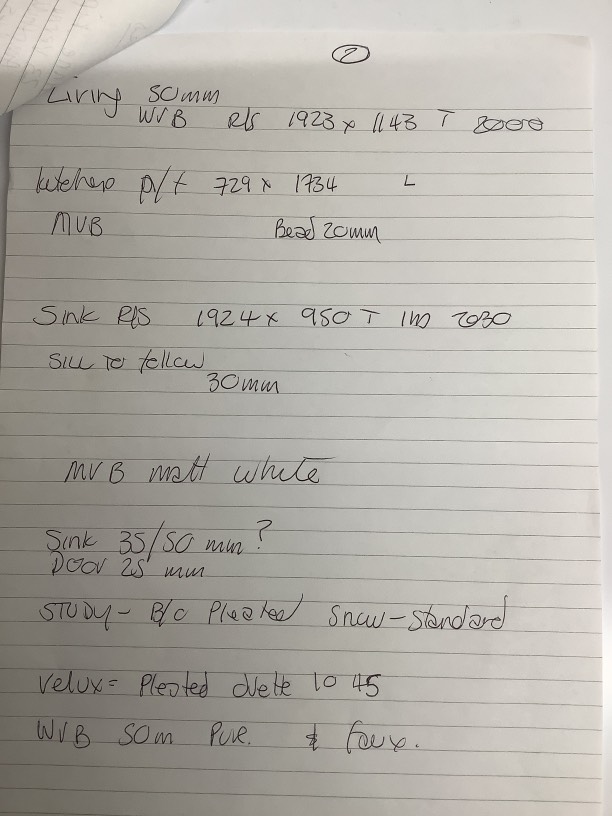 2
Living 50mm
WVB R/S 1923 x 1143 T 2000
Kitchen p/t 729 x 1734 L
MVB Bead 20mm
Sink R/S 1924 x 950 T 2030
Sill to follow
30mm
MVB matt white
Sink 35/50 mm?
Door 25 mm
STUDY - B/o Pleated Snow - Standard
Velux = Pleated 1045
WVB 50m Pure. & faux.